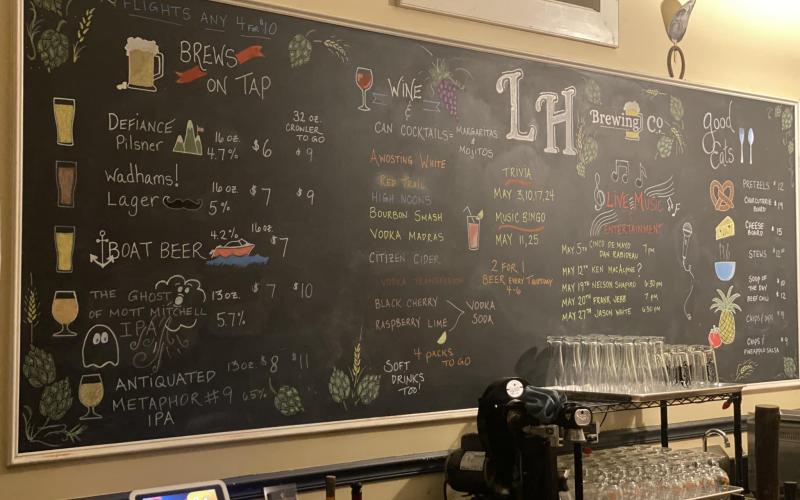 FLIGHTS ANY 4 FOR $10
BREWS
ON TAP
32 OZ.
CROWLER
TO GO
DEFIANCE
Pilsner
16 oz.
4.7%
$6
$9
Wadhams!
Lager
16oz.
5%
$7
$9
BOAT BEER
4.2%
16oz.
$7
THE GHOST
OF MOTT MITCHELL
IPA
13oz.
5.7%
$7
$10
ANTIQUATED
METAPHOR #9
IPA
13oz.
6.5%
$8
$11
WINE
&
CAN COCKTAILS = MARGARITAS
& MOJITOS
AWOSTING WHITE
RED TRAIL
HIGH NOONS
BOURBON SMASH
VODKA MADRAS
CITIZEN CIDER
VODKA TRANSFUSION
BLACK CHERRY
RASPBERRY LIME
VODKA
SODA
4 PACKS
TO GO
SOFT
DRINKS
TOO!
LH
Brewing Co
TRIVIA
MAY 3,10,17,24
MUSIC BINGO
MAY 11, 25
2 FOR 1
BEER EVERY THURSDAY
4-6
LIVE MUSIC
ENTERTAINMENT
MAY 5TH CINCO DE MAYO
DAN RABIDEAU 7pm
MAY 12TH KEN MCALPINE?
MAY 19TH NELSON SHAPIRO 6:30pm
MAY 20TH FRANK JEBB 7pm
MAY 27TH JASON WHITE 6:30pm
good
Eats
PRETZELS $12
CHARCUTERIE
BOARD $19
CHEESE
BOARD $15
STEWS $12
SOUP OF
THE DAY
BEEF CHILI
$9
$12
CHIPS/DIPS $9
CHIPS/
PINEAPPLE SALSA $9